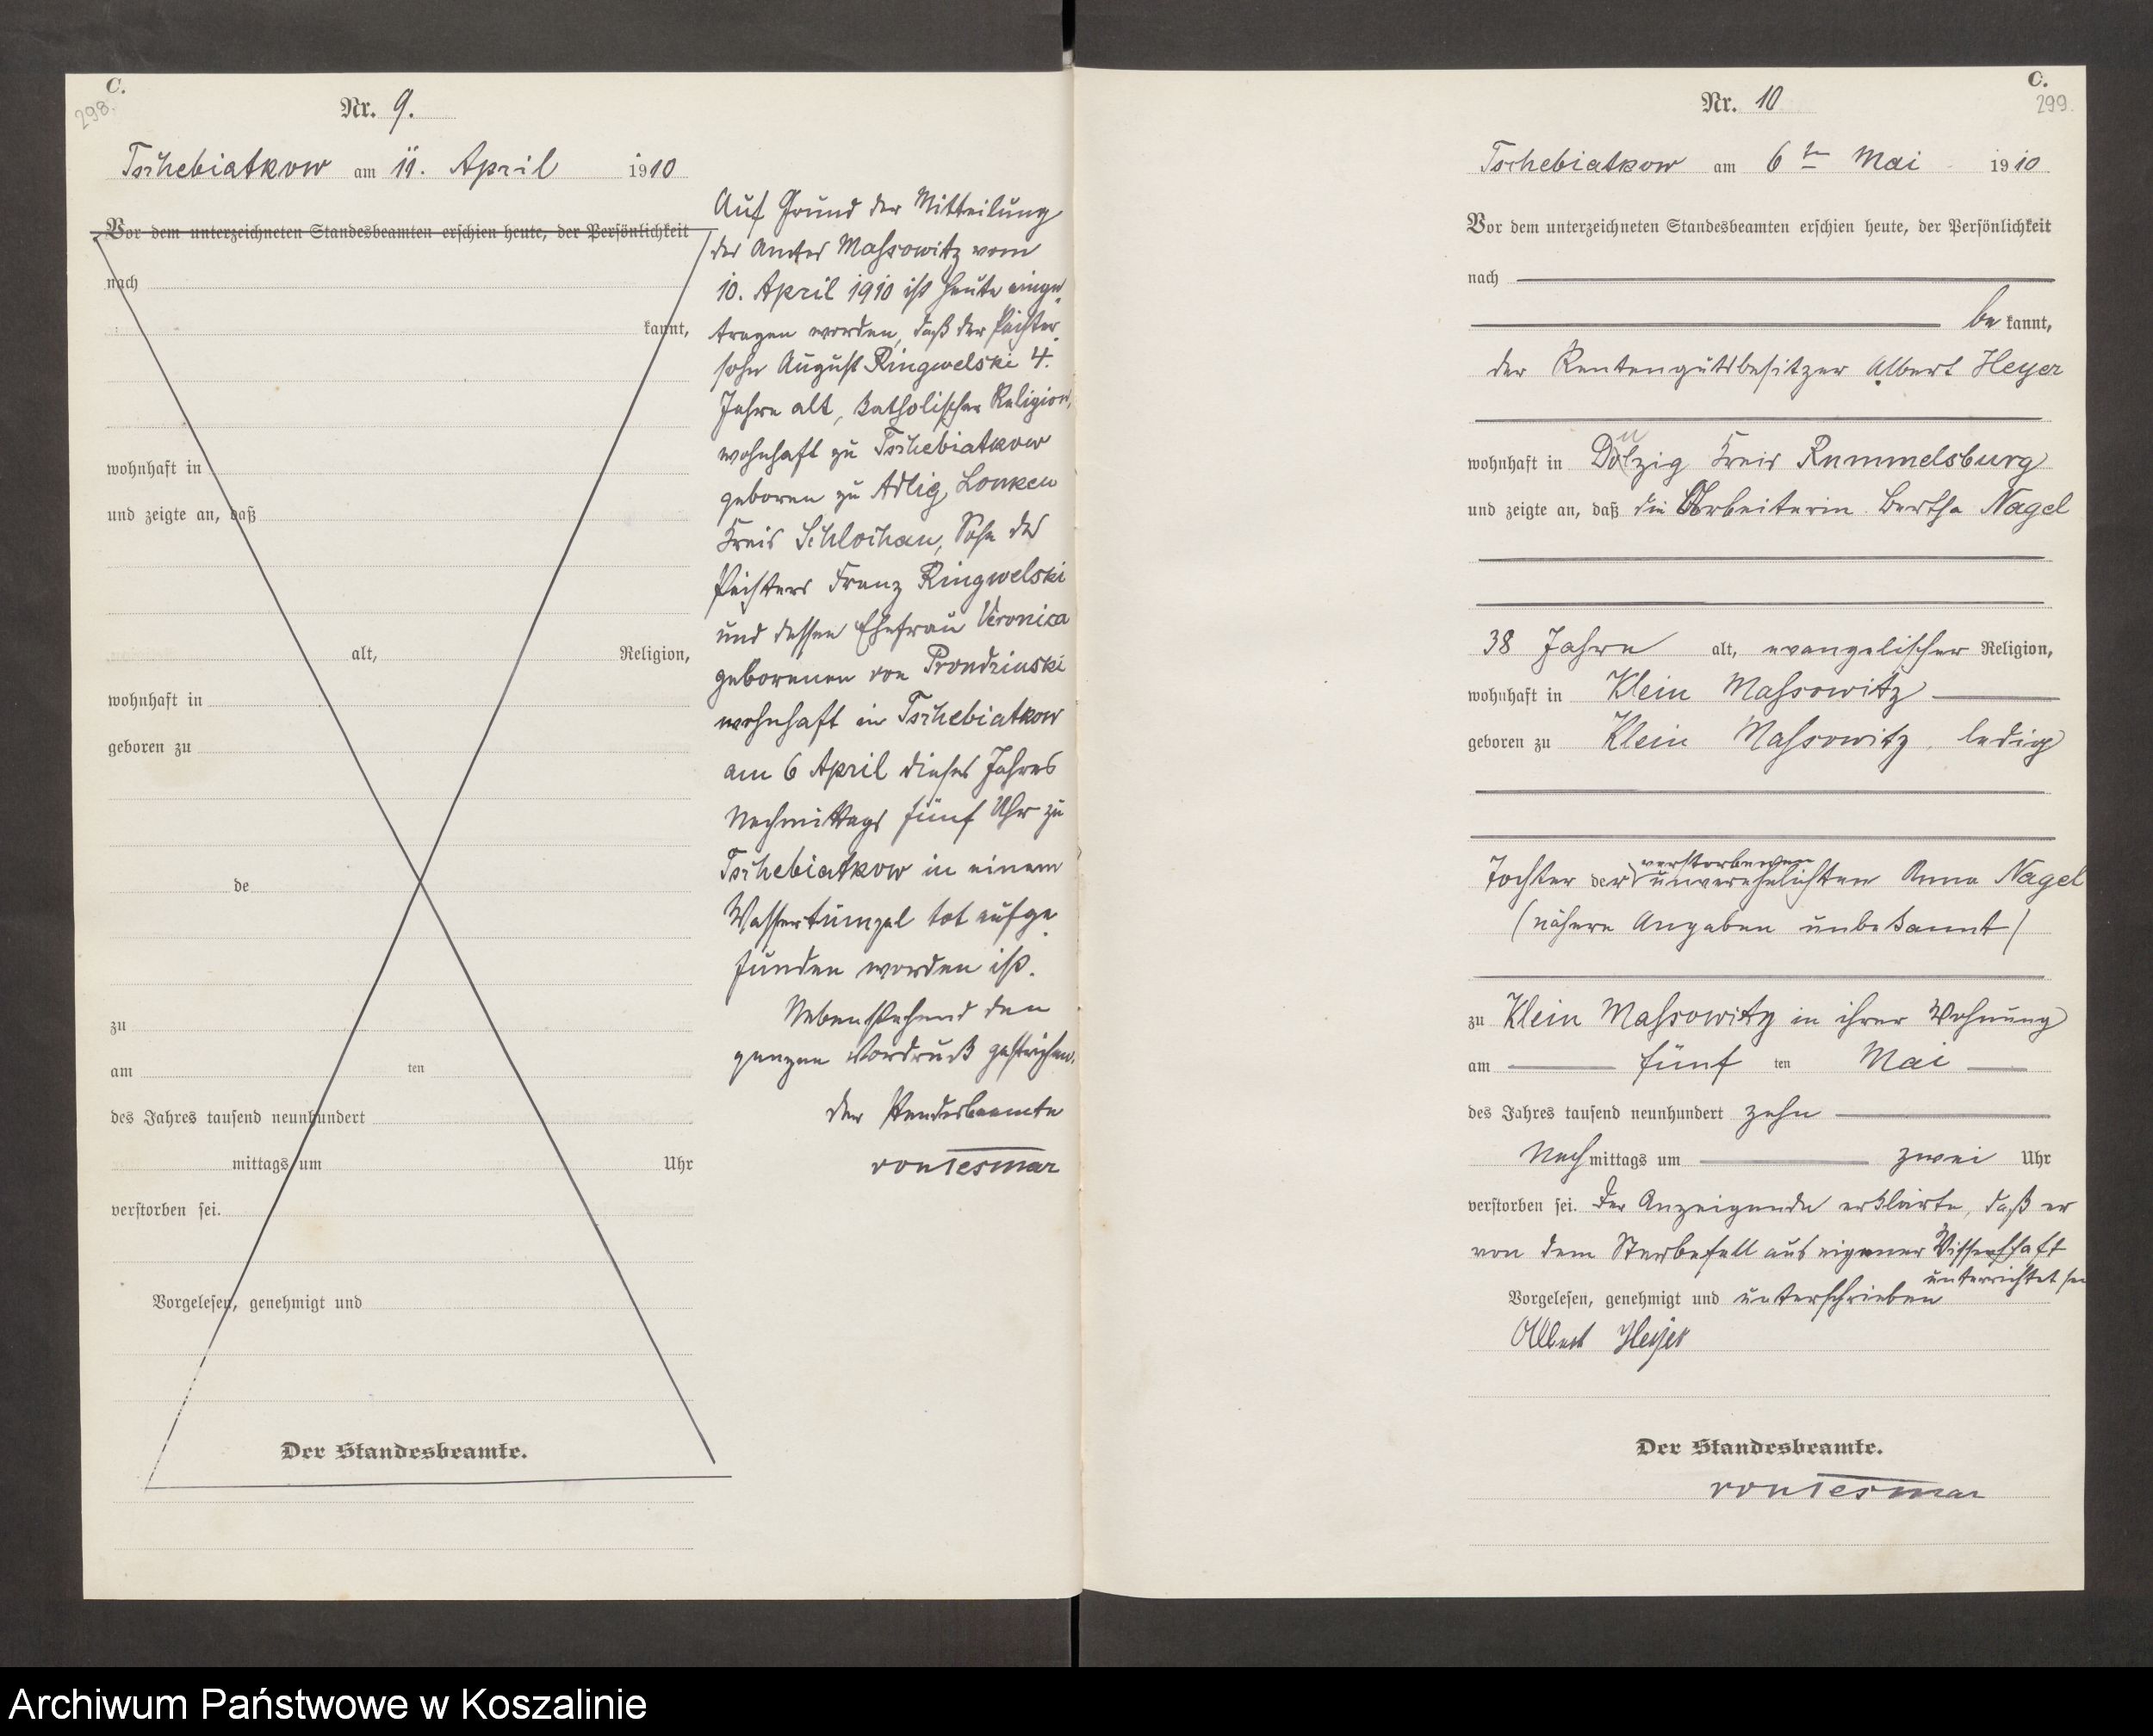 C.
298.
Nr. 9.
Tschebiatkow am 11. April 1910
Vor dem unterzeichneten Standesbeamten erschien heute, der Persönlichkeit
nach
kannt,
wohnhaft in
und zeigte an, daß
alt, Religion,
wohnhaft in
geboren zu
de
zu
am ten
des Jahres tausend neunhundert
mittags um Uhr
verstorben sei.
Vorgelesen, genehmigt und
Der Standesbeamte.
Auf Grund der Mitteilung
des Amtes Massowitz vom
10. April 1910 ist heute einge-
tragen worden, daß der Pächter-
sohn August Ringwelski 4.
Jahre alt, katholischer Religion,
wohnhaft zu Tschebiatkow
geboren zu Adlig Lonken
Kreis Schlochau, Sohn des
Pächters Franz Ringwelski
und dessen Ehefrau Veronika
geborenen von Prondzinski
wohnhaft in Tschebiatkow
am 6 April dieses Jahres
Nachmittags fünf Uhr zu
Tschebiatkow in einem
Wassertümpel tot aufge-
funden worden ist.
Nebenstehend den
ganzen Vordruck gestrichen.
Der Standesbeamte
von Tesmar
C.
299.
Nr. 10
Tschebiatkow am 6ten Mai 1910.
Vor dem unterzeichneten Standesbeamten erschien heute, der Persönlichkeit
nach
be kannt,
der Rentengutsbesitzer Albert Heyer
wohnhaft in Kreis Rummelsburg
und zeigte an, daß die Arbeiterin Bertha Nagel
38 Jahre alt, evangelischer Religion,
wohnhaft in Klein Massowitz
geboren zu Klein Massowitz, ledig
verstorbenen
Tochter der unverehelichten Anna Nagel
(nähere Angaben unbekannt)
zu Klein Massowitz in ihrer Wohnung
am fünf ten Mai
des Jahres tausend neunhundert zehn
Nachmittags um zwei Uhr
verstorben sei. Der Anzeigende erklärte, daß er
von dem Sterbefall aus eigener Wissenschaft
unterrichtet sei
Vorgelesen, genehmigt und unterschrieben
Albert Heyer
Der Standesbeamte.
von Tesmar
Archiwum Państwowe w Koszalinie